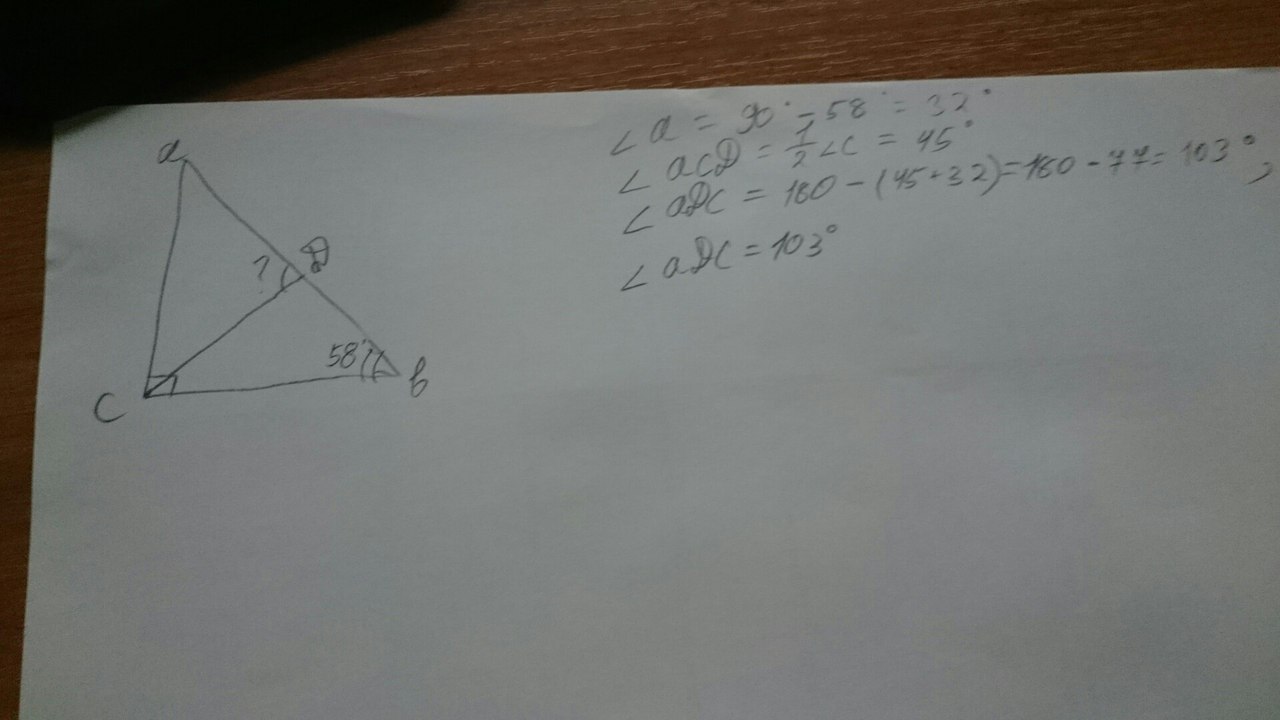 a
D
?
58°
C
b
∠a = 90° - 58° = 32°
∠aCD = 1/2 ∠C = 45°
∠aDC = 180 - (45+32) = 180 - 77 = 103°,
∠aDC = 103°